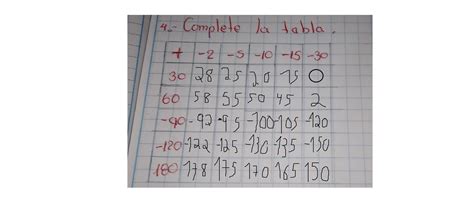 4.- Complete la tabla.
+ -2 -5 -10 -15 -30
30 28 25 20 15 0
60 58 55 50 45 2
-90 -92 -95 -100 -105 -120
-120 -122 -125 -130 -135 -150
180 178 175 170 165 150